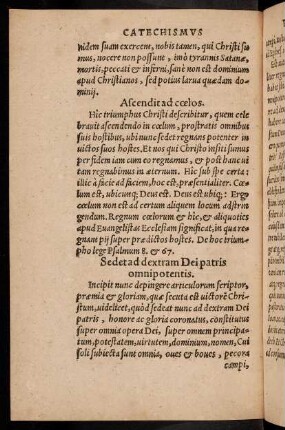 CATECHISMVS
nidem suam exercent, nobis tamen, qui Christi su
mus, nocere non possunt, imò tyrannis Satanæ,
mortis, peccati & inferni, sanè non est dominium
apud Christianos, sed potius larua quædam do
minij.
Ascendit ad cœlos.
Hic triumphus Christi describitur, quem cele
brauit ascendendo in cœlum, prostratis omnibus
suis hostibus, ubi nunc sedet regnans potenter in
uictos suos hostes. Et nos qui Christo insiti sumus
per fidem iam cum eo regnamus, & post hanc ui
tam regnabimus in æternum. Hic sub spe certa:
illic à facie ad faciem, hoc est, præsentialiter. Cœ
lum est, ubicunq; Deus est. Deus est ubiq;: Ergo
cœlum non est ad certum aliquem locum adstrin
gendum. Regnum cœlorum & hic, & aliquoties
apud Euangelistas Ecclesiam significat, in qua re
gnant pij super prædictos hostes. De hoc trium
pho lege Psalmum 8. & 67.
Sedet ad dextram Dei patris
omnipotentis.
Incipit nunc depingere articulorum scriptor,
præmia & gloriam, quæ secuta est uictorē Chri
stum, uidelicet, quòd sedeat nunc ad dextram Dei
patris, honore ac gloria coronatus, constitutus
super omnia opera Dei, super omnem principa
tum, potestatem, uirtutem, dominium, nomen, Cui
soli subiecta sunt omnia, oues & boues, pecora
campi,